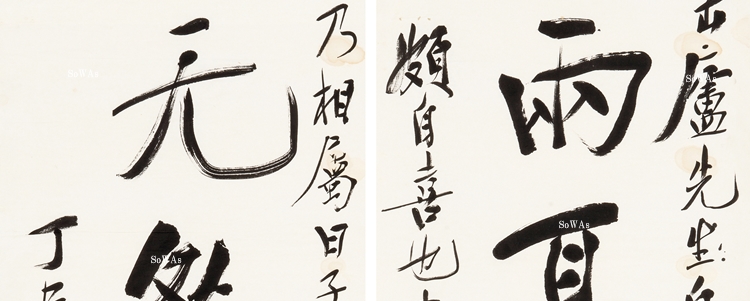 廬先生
兩
頗自喜也
乃相屬曰子
元
丁
SoWAs
SoWAs
SoWAs
SoWAs